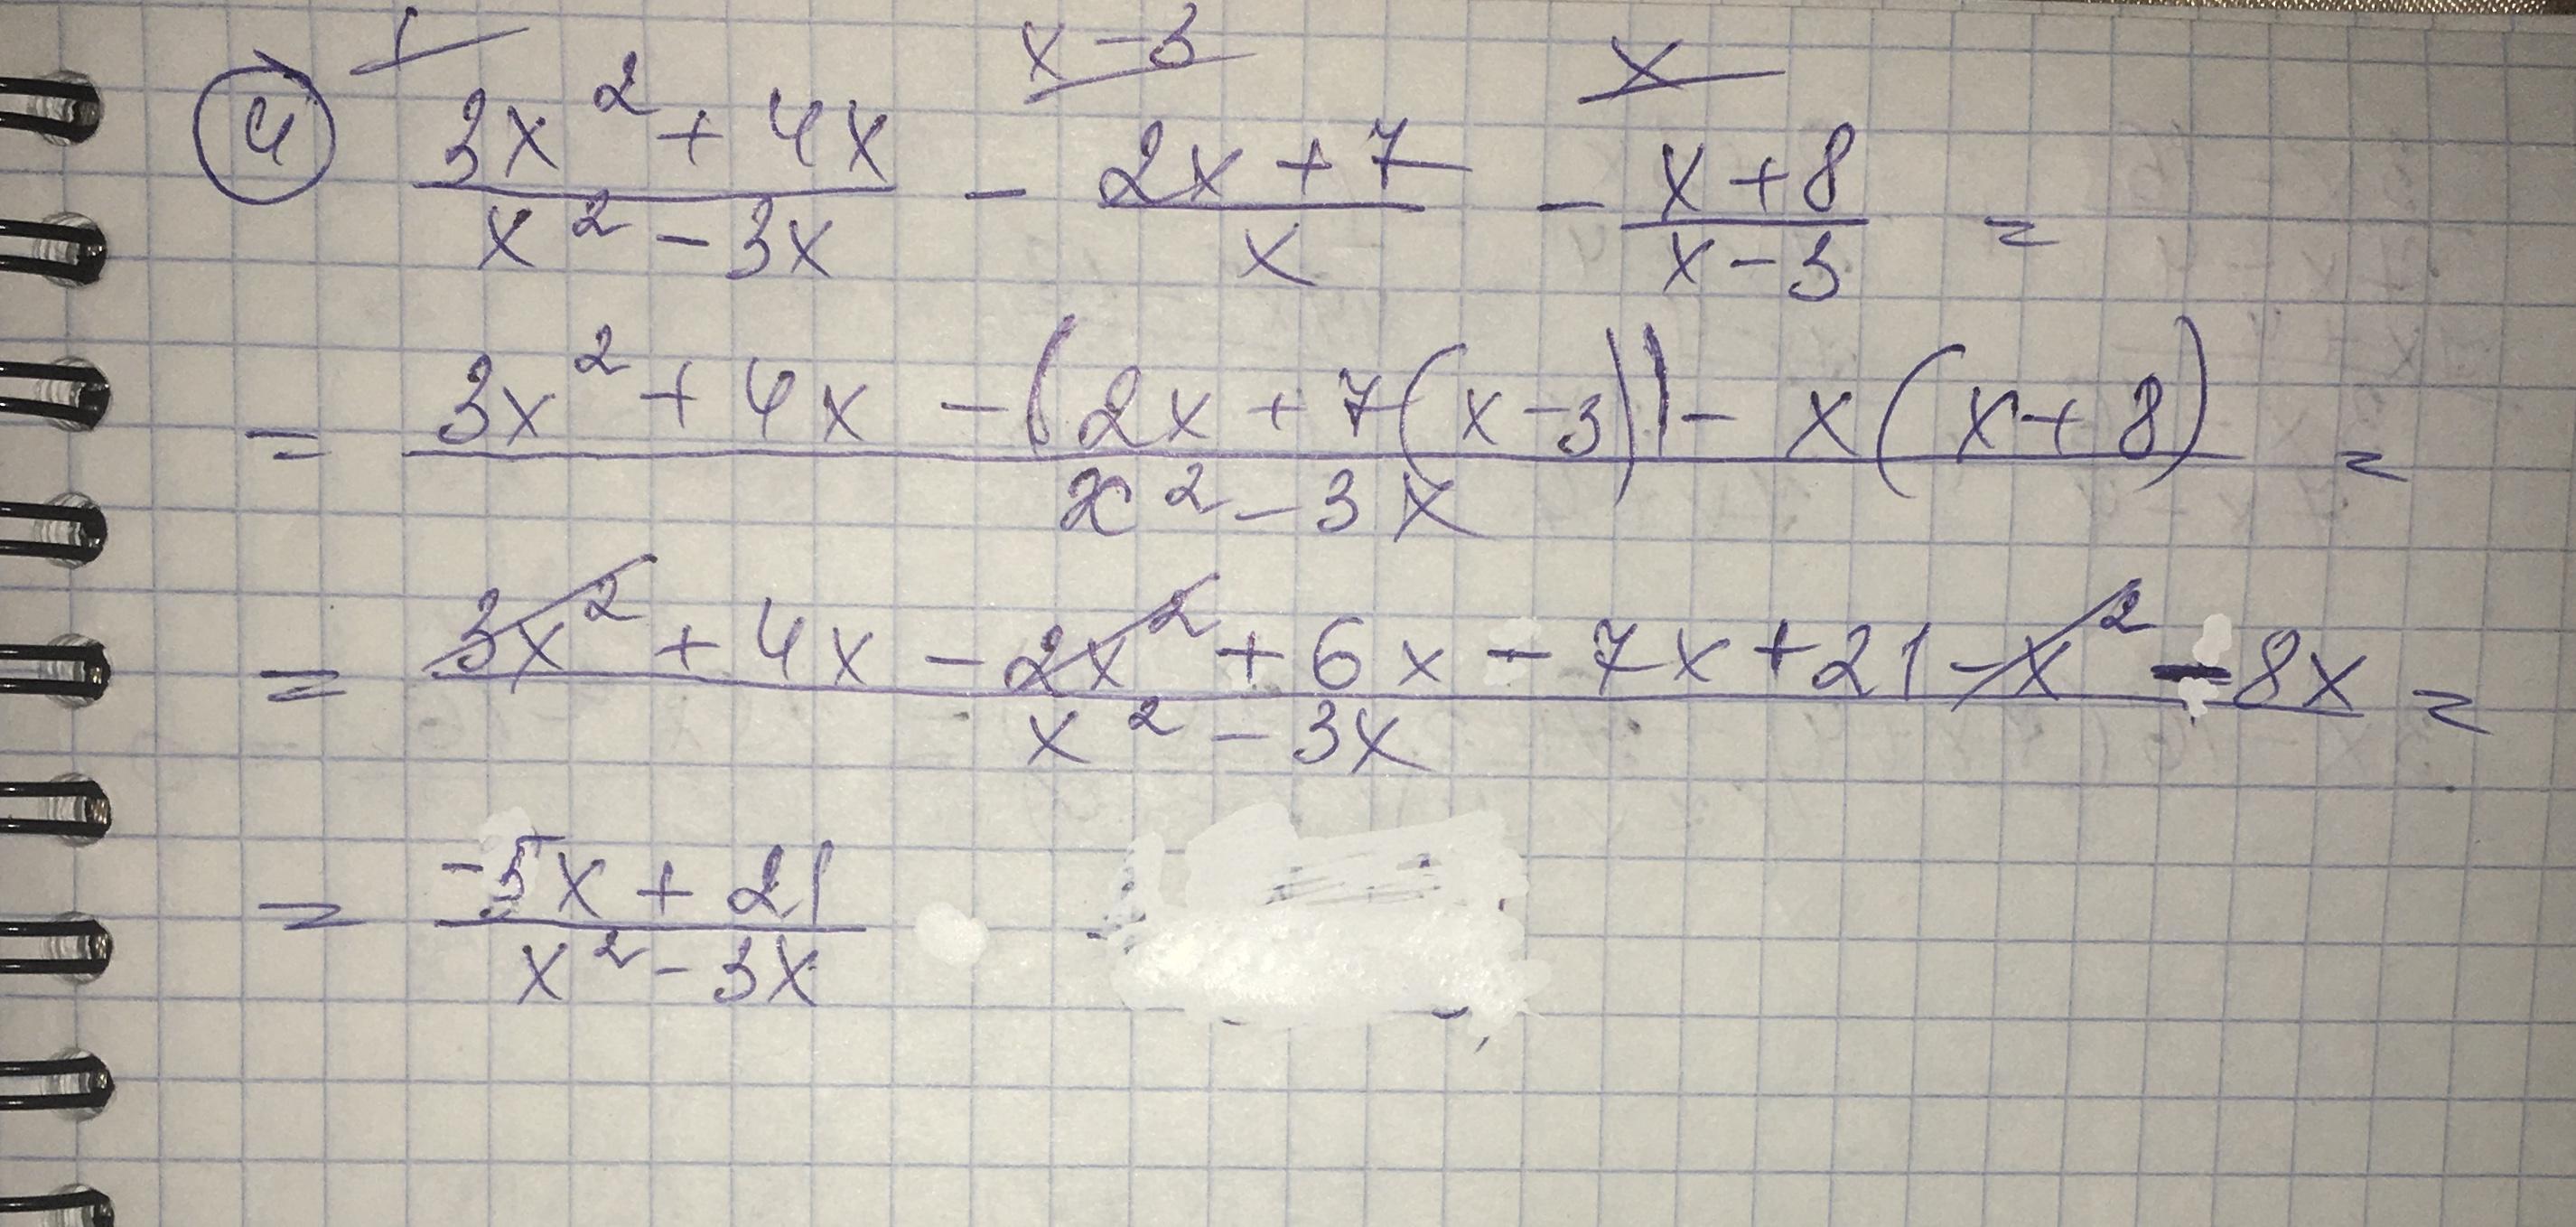 1 x-3 x
④ (3x² + 4x)/(x² - 3x) - (2x + 7)/x - (x + 8)/(x - 3) =
= (3x² + 4x - (2x + 7(x - 3)) - x(x + 8))/(x² - 3x) =
= (3x² + 4x - 2x² + 6x - 7x + 21 - x² - 8x)/(x² - 3x) =
= (-5x + 21)/(x² - 3x)